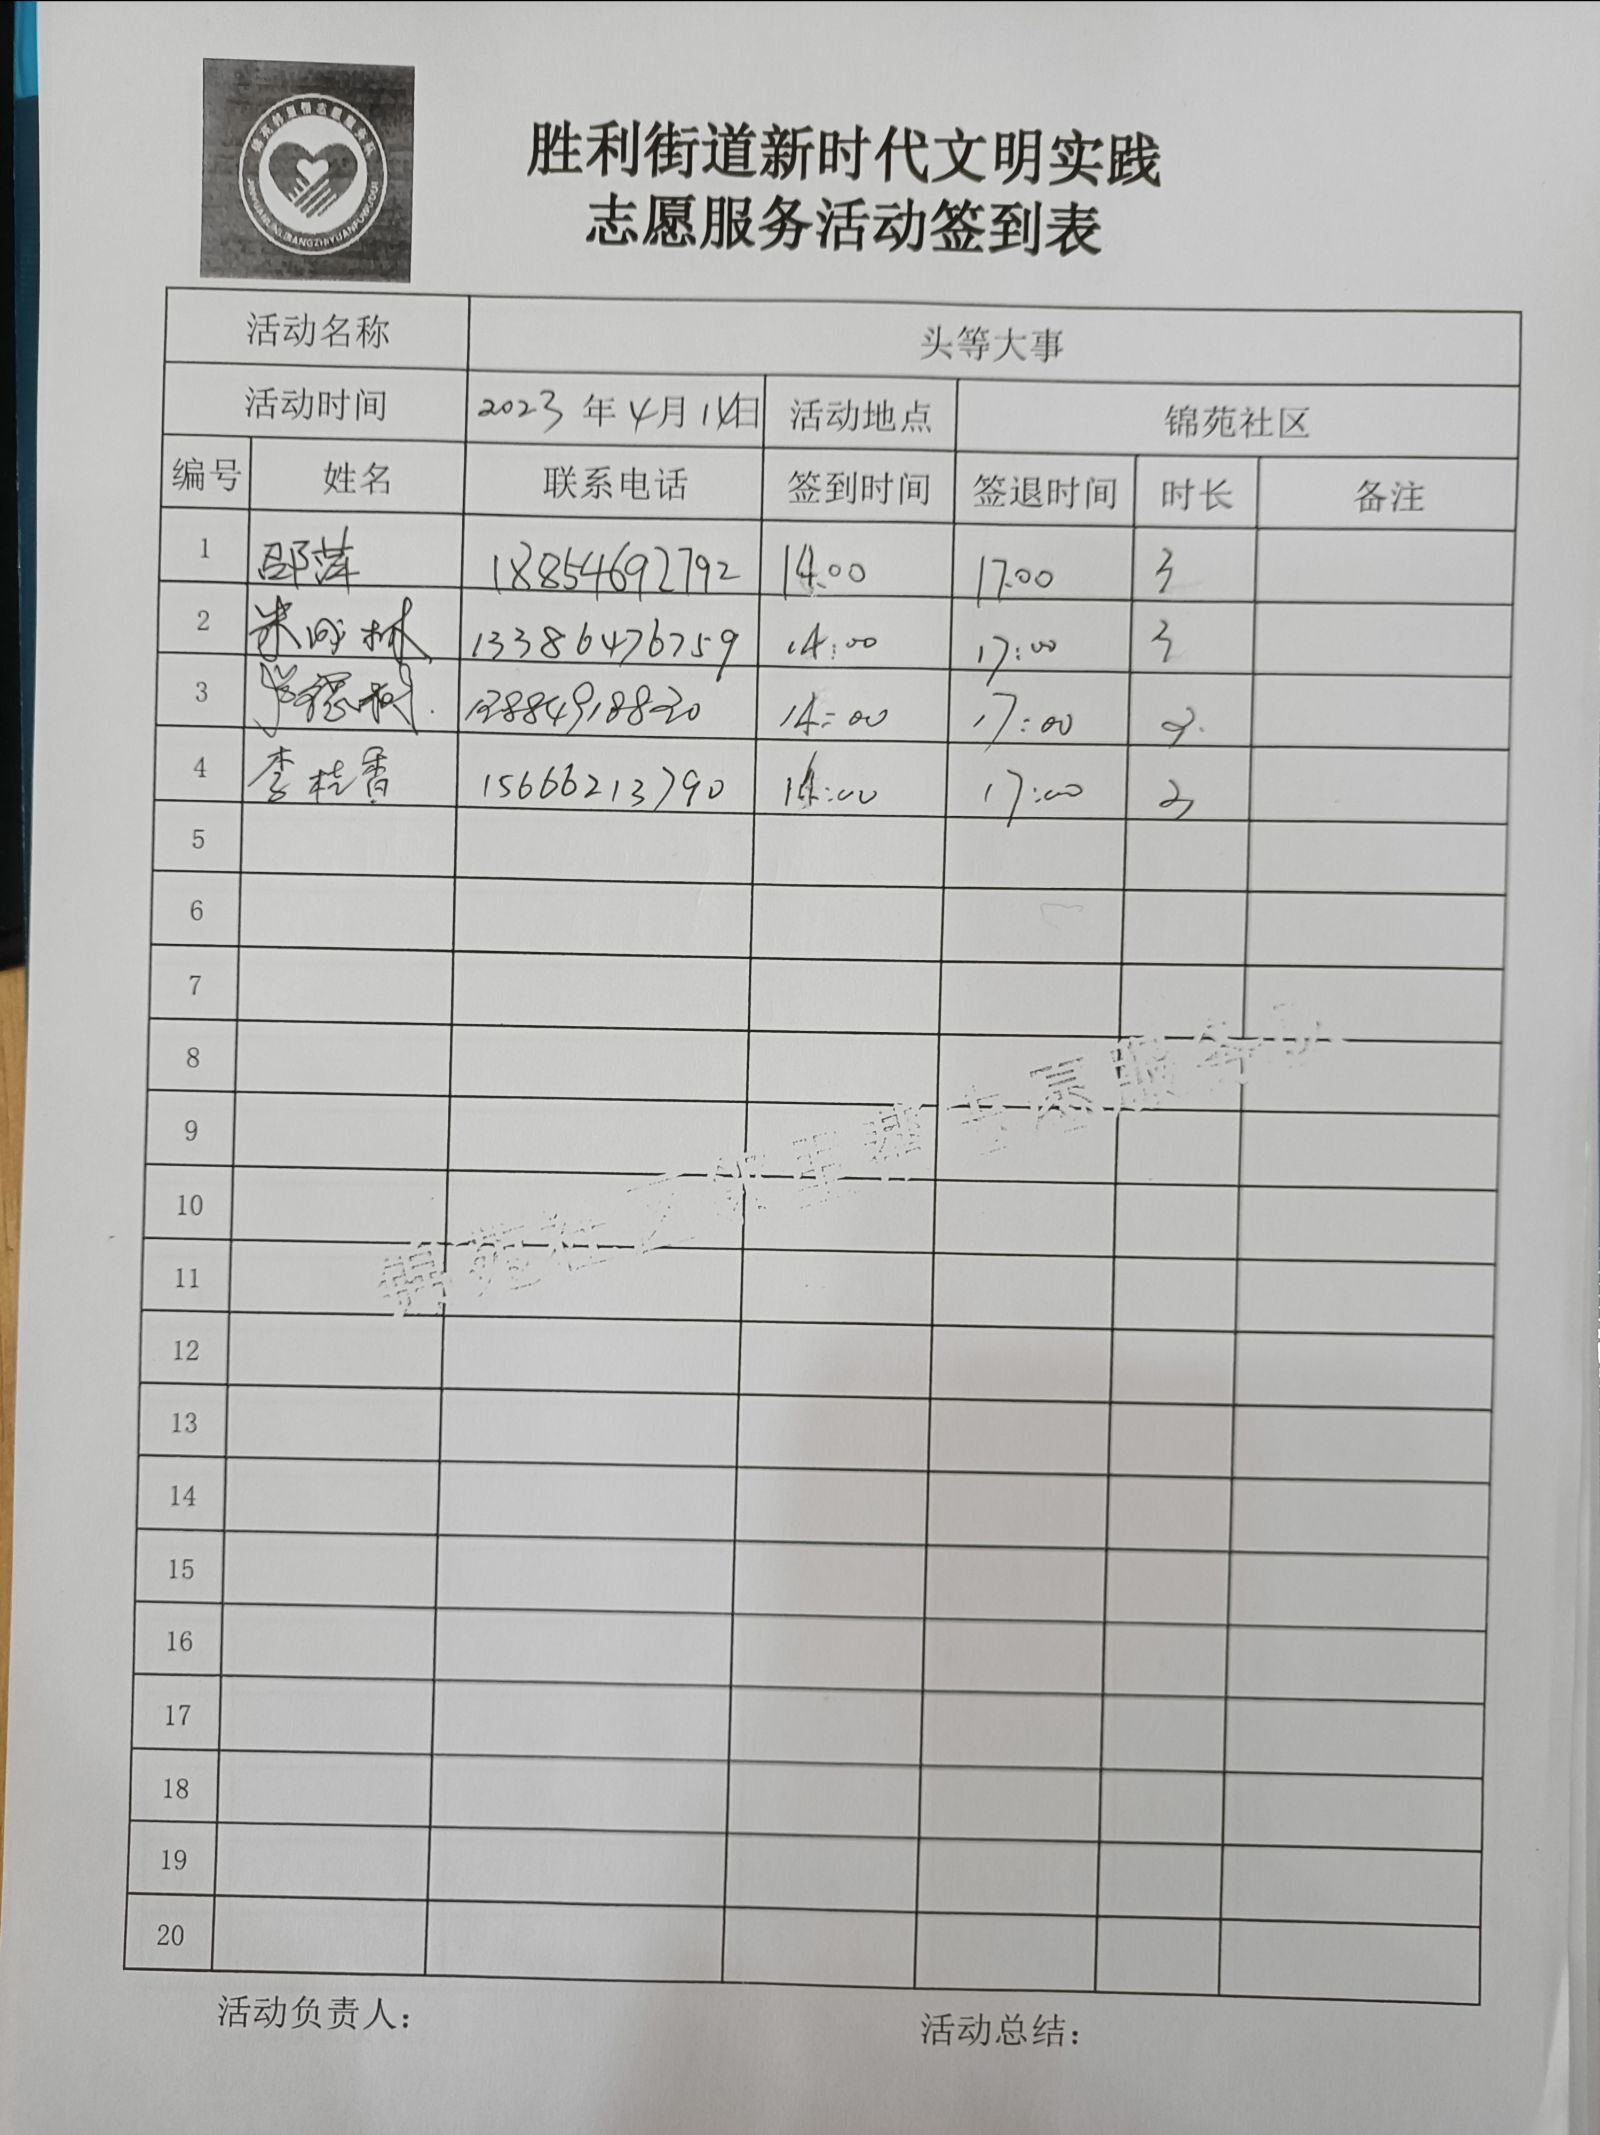 胜利街道新时代文明实践
志愿服务活动签到表
活动名称 头等大事
活动时间 2023年4月14日 活动地点 锦苑社区
编号 姓名 联系电话 签到时间 签退时间 时长 备注
1 邵萍 18854692792 14:00 17:00 3
2 林 13386476759 14:00 17:00 3
3 13884918820 14:00 17:00
4 李桂香 15666213790 14:00 17:00
5
6
7
8
9
10
11
12
13
14
15
16
17
18
19
20
活动负责人: 活动总结: